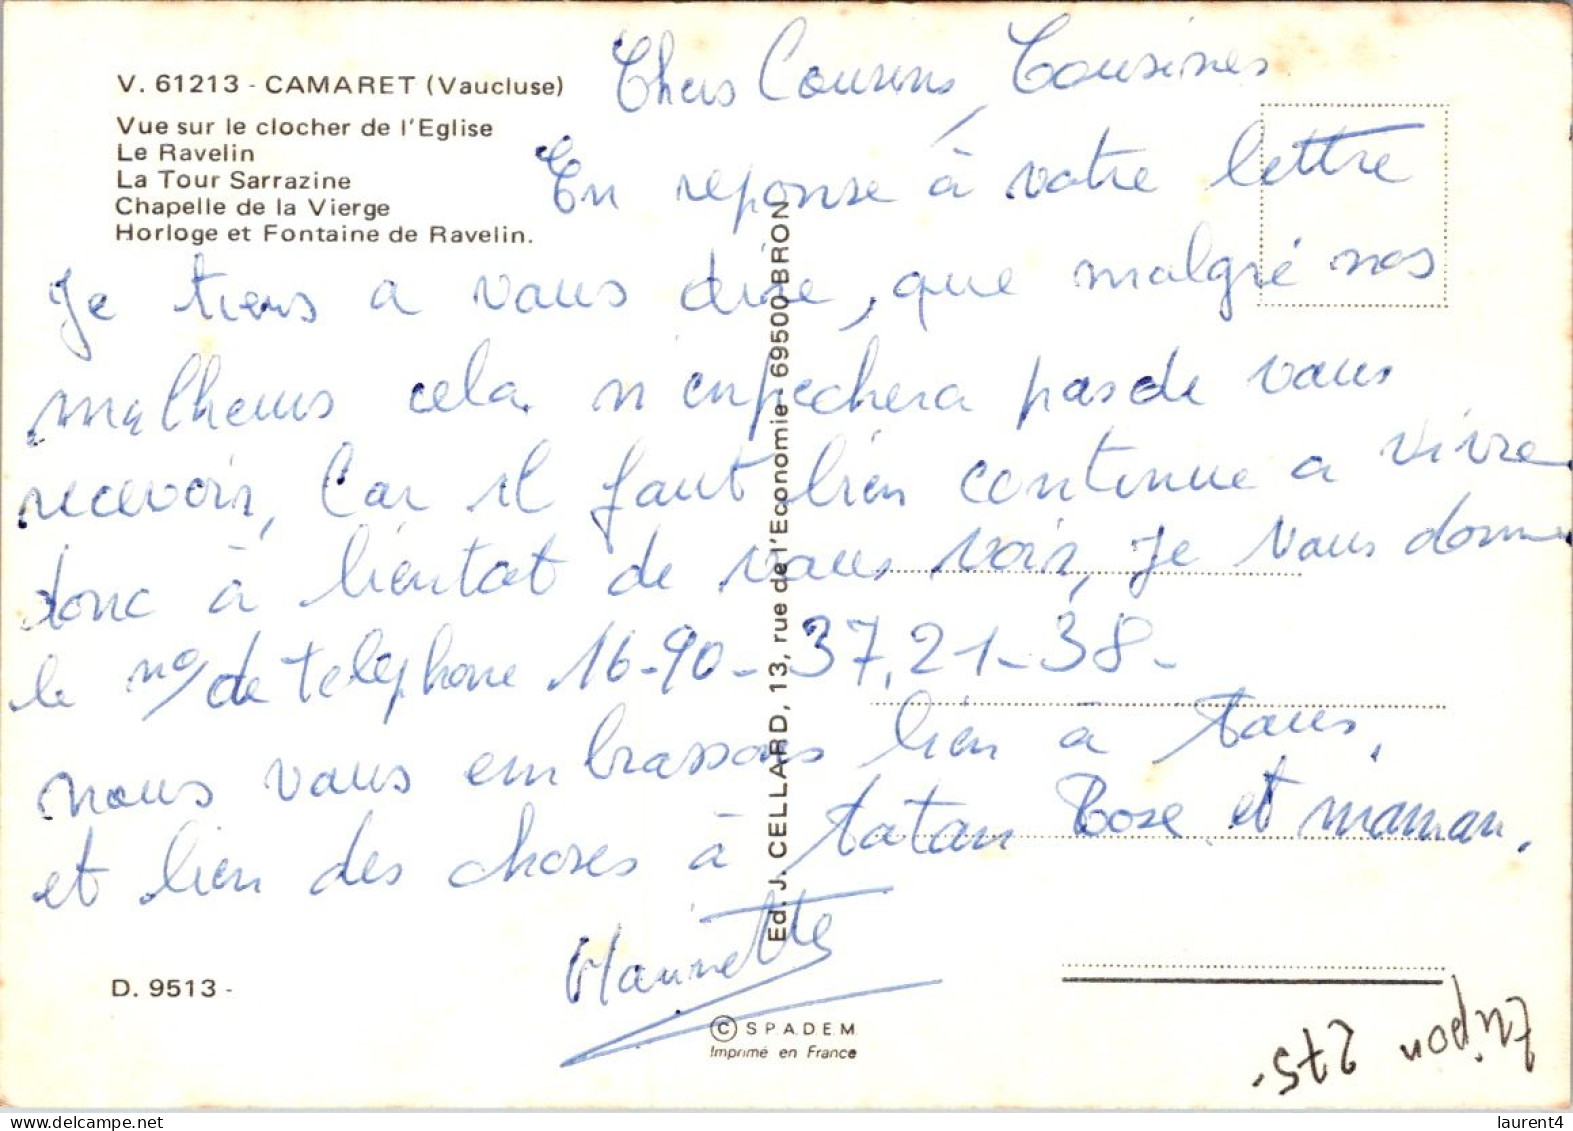 V. 61213 - CAMARET (Vaucluse)
Vue sur le clocher de l'Eglise
Le Ravelin
La Tour Sarrazine
Chapelle de la Vierge
Horloge et Fontaine de Ravelin.
Chers Cousins, Cousines
En reponse à votre lettre
Je tiens a vous dire, que malgré nos
malheurs cela n'enpechera pas de vous
recevoir, Car il faut bien continue a vivre
donc à bientot de vous voir, je vous donne
le no/ de telephone 16-90-37.21-38-
nous vous embrassons bien à tous,
et bien des choses à tatan Rose et maman.
Ed. J. CELLARD, 13, rue de l'Economie - 69500 BRON
D. 9513 -
© SPADEM
Imprimé en France
275-
laurent4